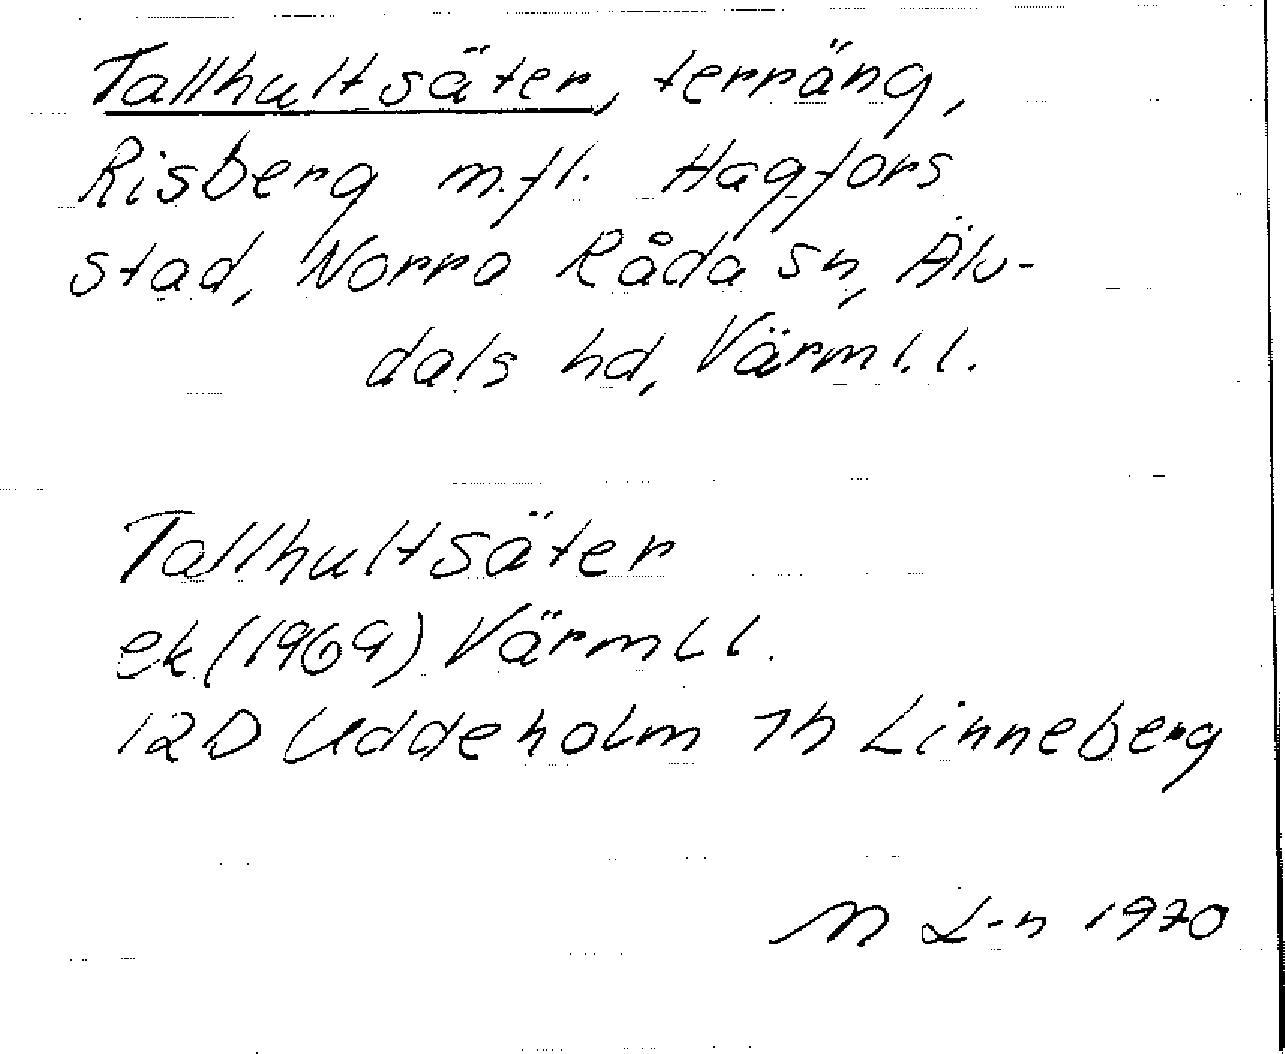 Tallhultsäter, terräng,
Risberg m.fl. Hagfors
stad, Norra Råda sn, Älv-
dals hd, Värml.l.
Tallhultsäter
ek (1969) Värml l.
12D Uddeholm 7h Linneberg
M L-n 1970